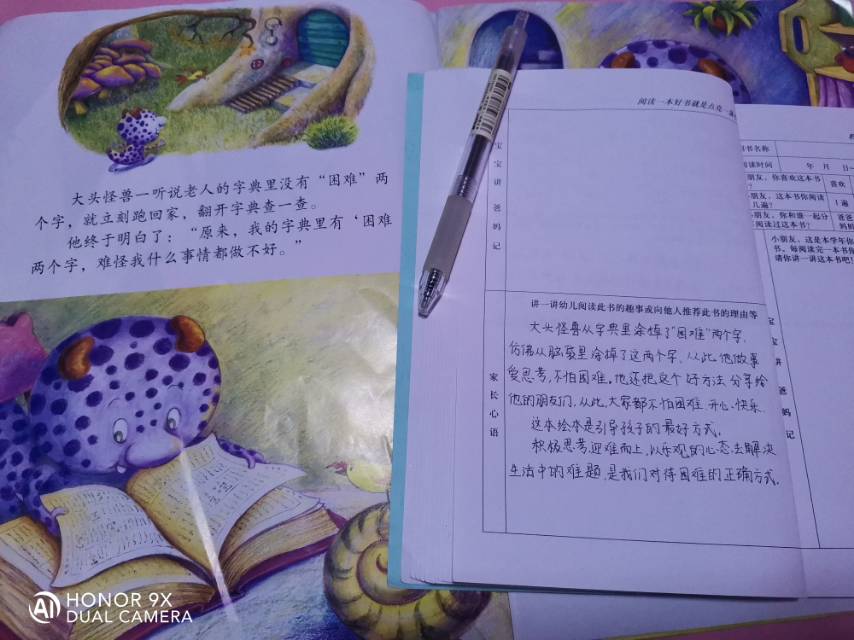 大头怪兽一听说老人的字典里没有“困难”两
个字，就立刻跑回家，翻开字典查一查。
他终于明白了：“原来，我的字典里有‘困难
两个字，难怪我什么事情都做不好。”
阅读一本好书就是点亮一
宝宝讲 爸妈记
讲一讲幼儿阅读此书的趣事或向他人推荐此书的理由等
家长心语
大头怪兽从字典里涂掉了“困难”两个字，
仿佛从脑袋里涂掉了这两个字，从此他做事
爱思考，不怕困难。他还把这个好方法分享给
他的朋友们，从此，大家都不怕困难，开心、快乐、
这本绘本是引导孩子的最好方式。
积极思考，迎难而上，以乐观的心态去解决
生活中的难题，是我们对待困难的正确方式。
书名称
阅读时间 年 月 日
朋友，你喜欢这本书 喜欢
朋友，这本书你阅读
几遍? 1遍
朋友，你和谁一起分 爸爸
阅读过这本书? 妈妈
小朋友，这是本学年你
书，每阅读完一本书你
请你讲一讲这本书吧!
宝宝讲 爸妈记
HONOR 9X
DUAL CAMERA